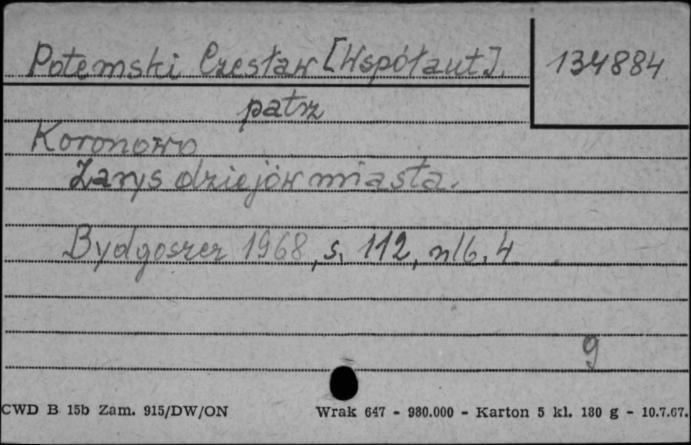 Potemski Czesław [Współaut]. 134884
patrz
Koronowo
Zarys dziejów miasta.
Bydgoszcz 1968, s. 112, nlb. 4
g
CWD B 15b Zam. 915/DW/ON Wrak 647 - 980.000 - Karton 5 kl. 180 g - 10.7.67.